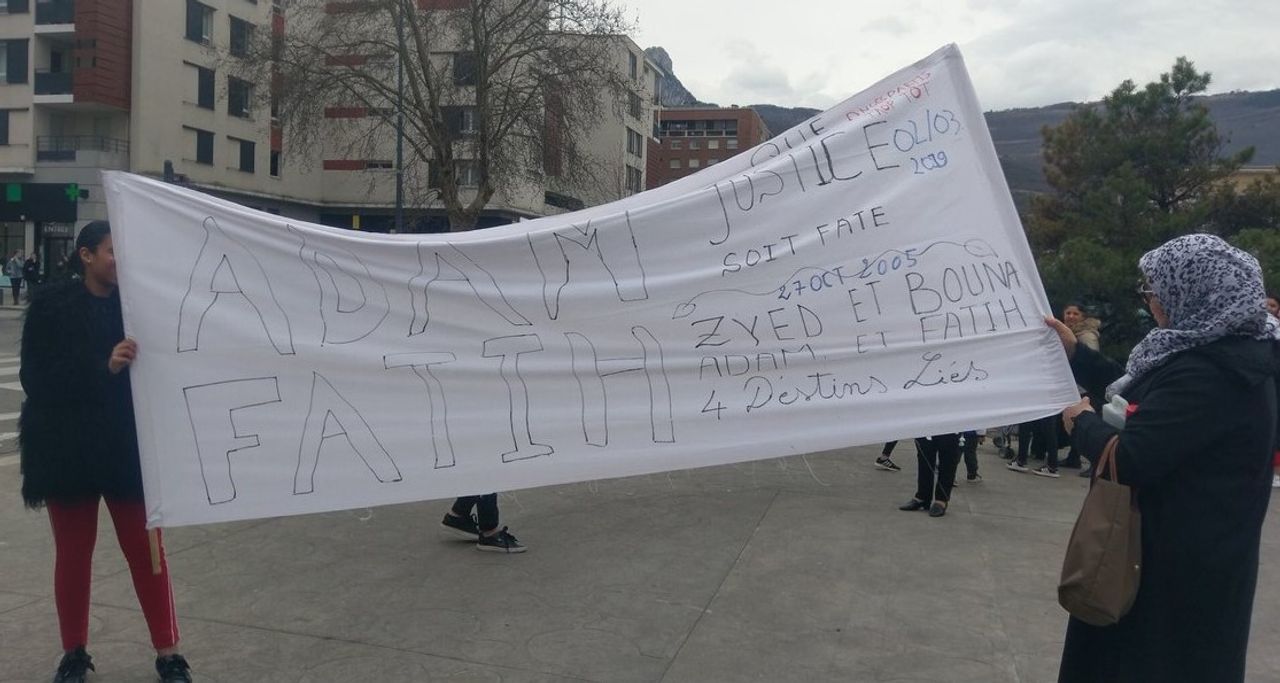 ADAM
FATIH
TROP TOT
QUE
JUSTICE 02/03
2019
SOIT FATE
27 OCT 2005
ZYED ET BOUNA
ADAM. ET FATIH
4 Déstins Liés